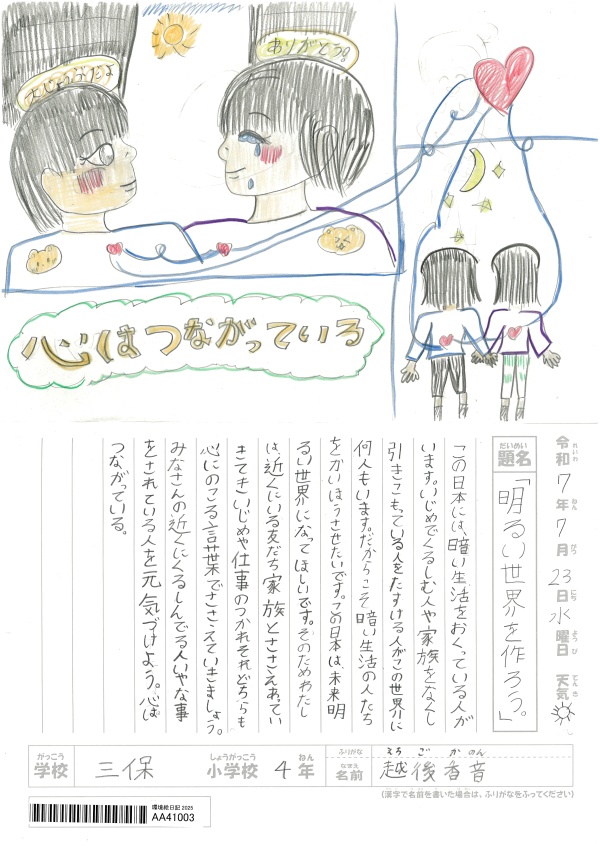 大じょうぶだよ
ありがとう!
心はつながっている
令和7年7月23日水曜日 天気
れいわ ねん がつ にち ようび てんき
だいめい
題名
「明るい世界を作ろう。」
この日本には、暗い生活をおくっている人が
います。いじめでくるしむ人や家族をなくし
引きこもっている人をたすける人がこの世界に
何人もいます。だからこそ暗い生活の人たち
をかいほうさせたいです。この日本は、未来明
るい世界になってほしいです。そのためわたし
は、近くにいる友だち家族とささえあってい
きてきいじめや仕事のつかれそれどちらも
心にのこる言葉でささえていきましょう。
みなさんの近くにくるしんでる人いやな事
をされている人を元気づけよう。心は
つながっている。
がっこう しょうがっこう ねん
学校 三保 小学校 4年
ふりがな えちごかのん
なまえ
名前 越後香音
(漢字で名前を書いた場合は、ふりがなをふってください)
環境絵日記 2025
AA41003